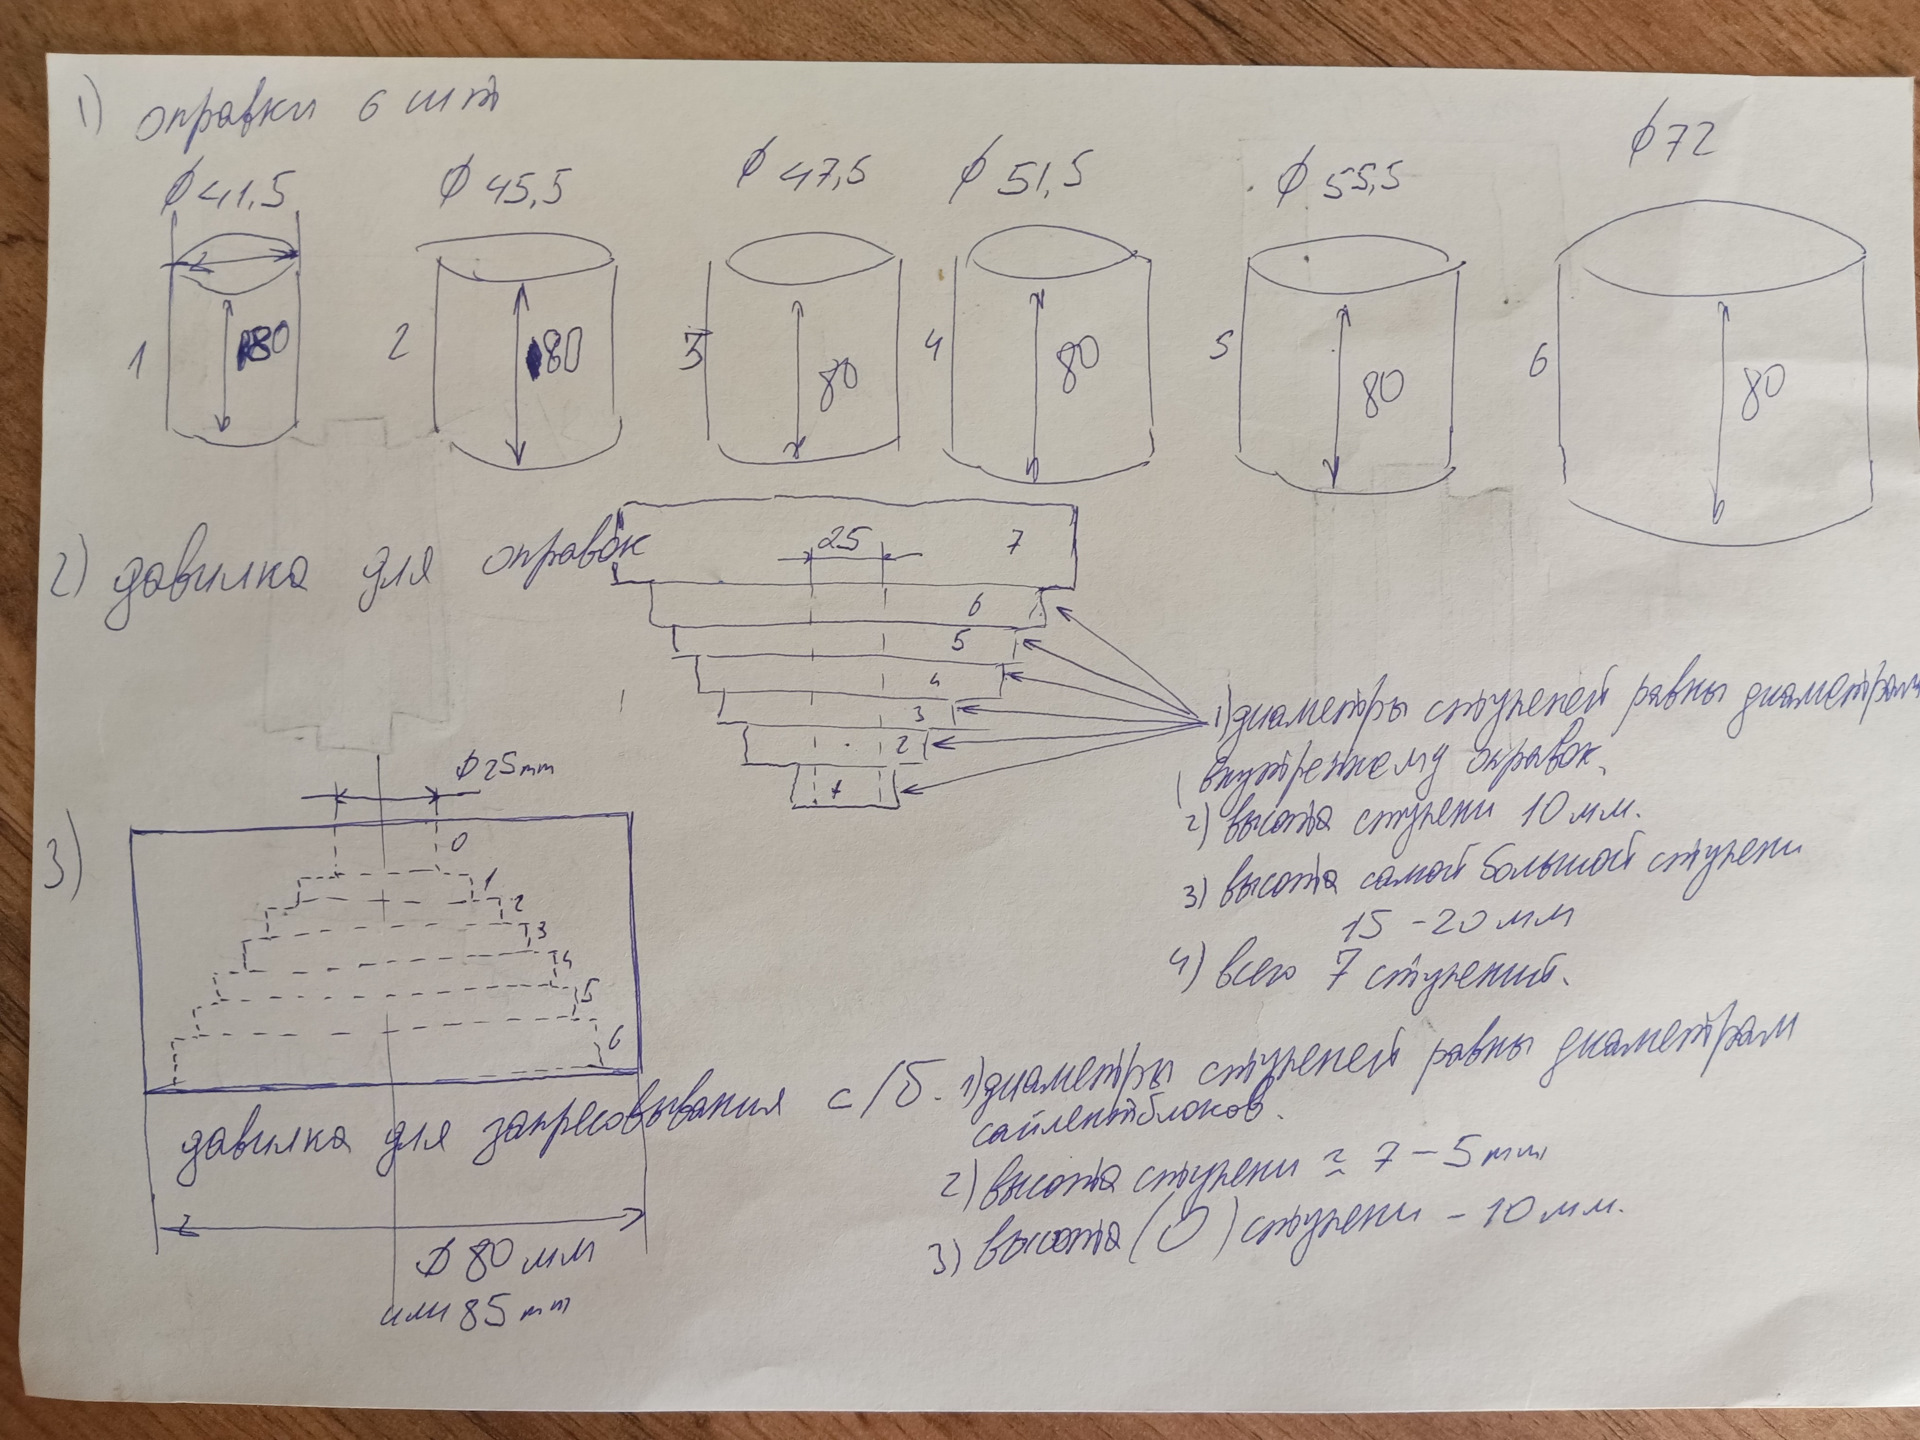 1) оправки 6 шт
ϕ 41,5 ϕ 45,5 ϕ 47,5 ϕ 51,5 ϕ 55,5 ϕ 72
1 80 2 80 3 80 4 80 5 80 6 80
2) давилка для оправок
25 7
6
5
4
3
2
1
1) диаметры ступеней равны диаметрам
внутреннему оправок.
2) высота ступени 10 мм.
3) высота самой большой ступени
15 - 20 мм
4) всего 7 ступений.
3)
ϕ 25 mm
0
1
2
3
4
5
6
давилка для запресовывания с/б.
ϕ 80 мм
или 85 mm
1) диаметры ступеней равны диаметрам
сайлентблоков.
2) высота ступени ≈ 7 - 5 mm
3) высота (0) ступени - 10 мм.